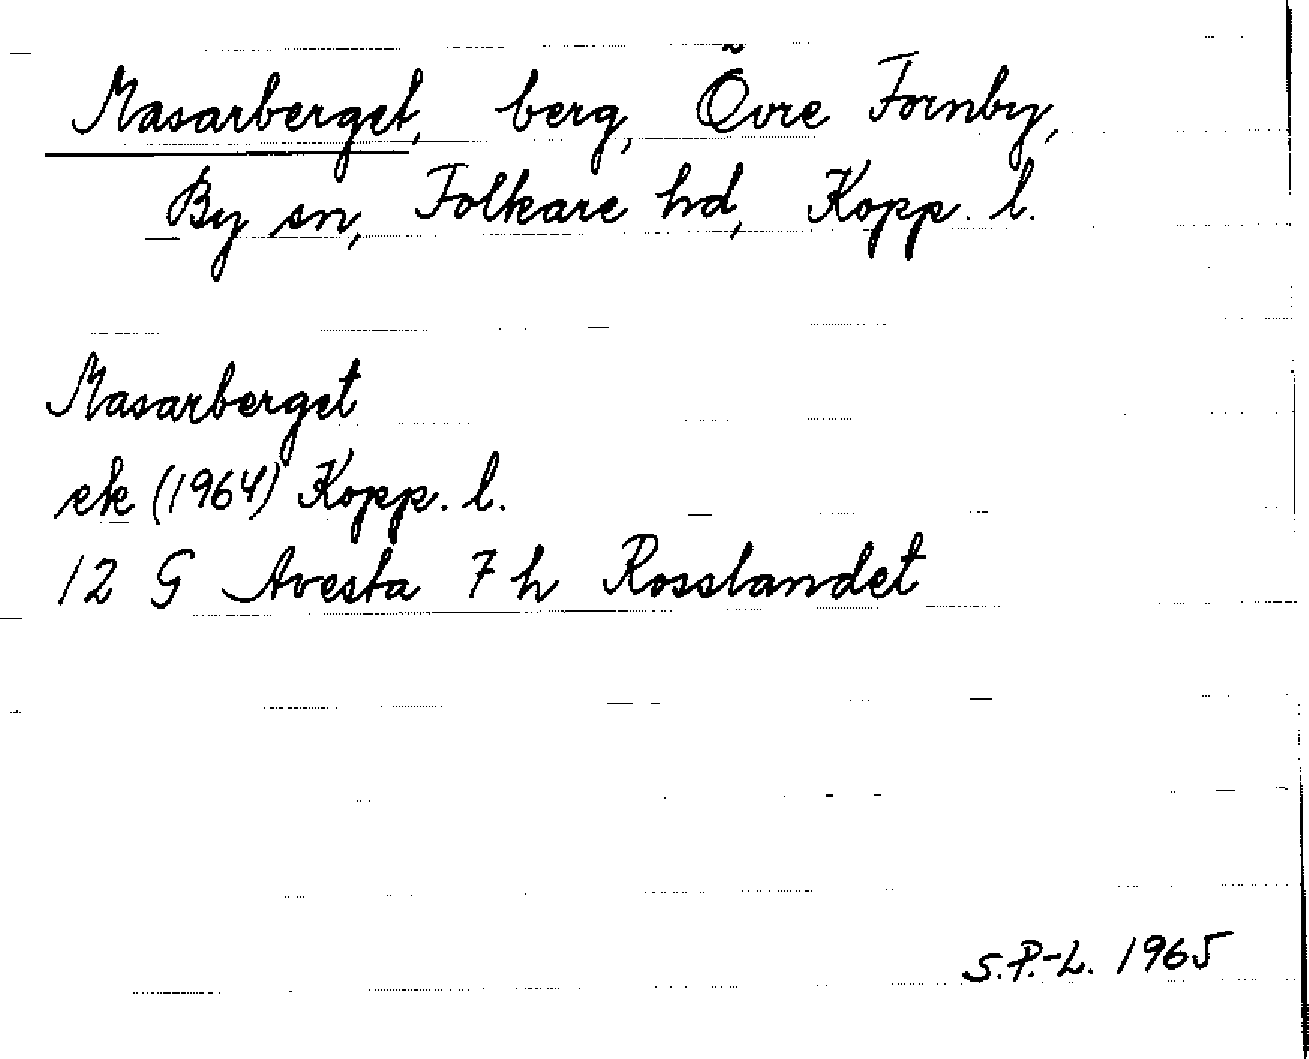 Masarberget, berg, Övre Fornby,
By sn, Folkare hd, Kopp. l.
Masarberget
ek (1964) Kopp. l.
12 G Avesta 7 h Rosslandet
S.P.-L. 1965